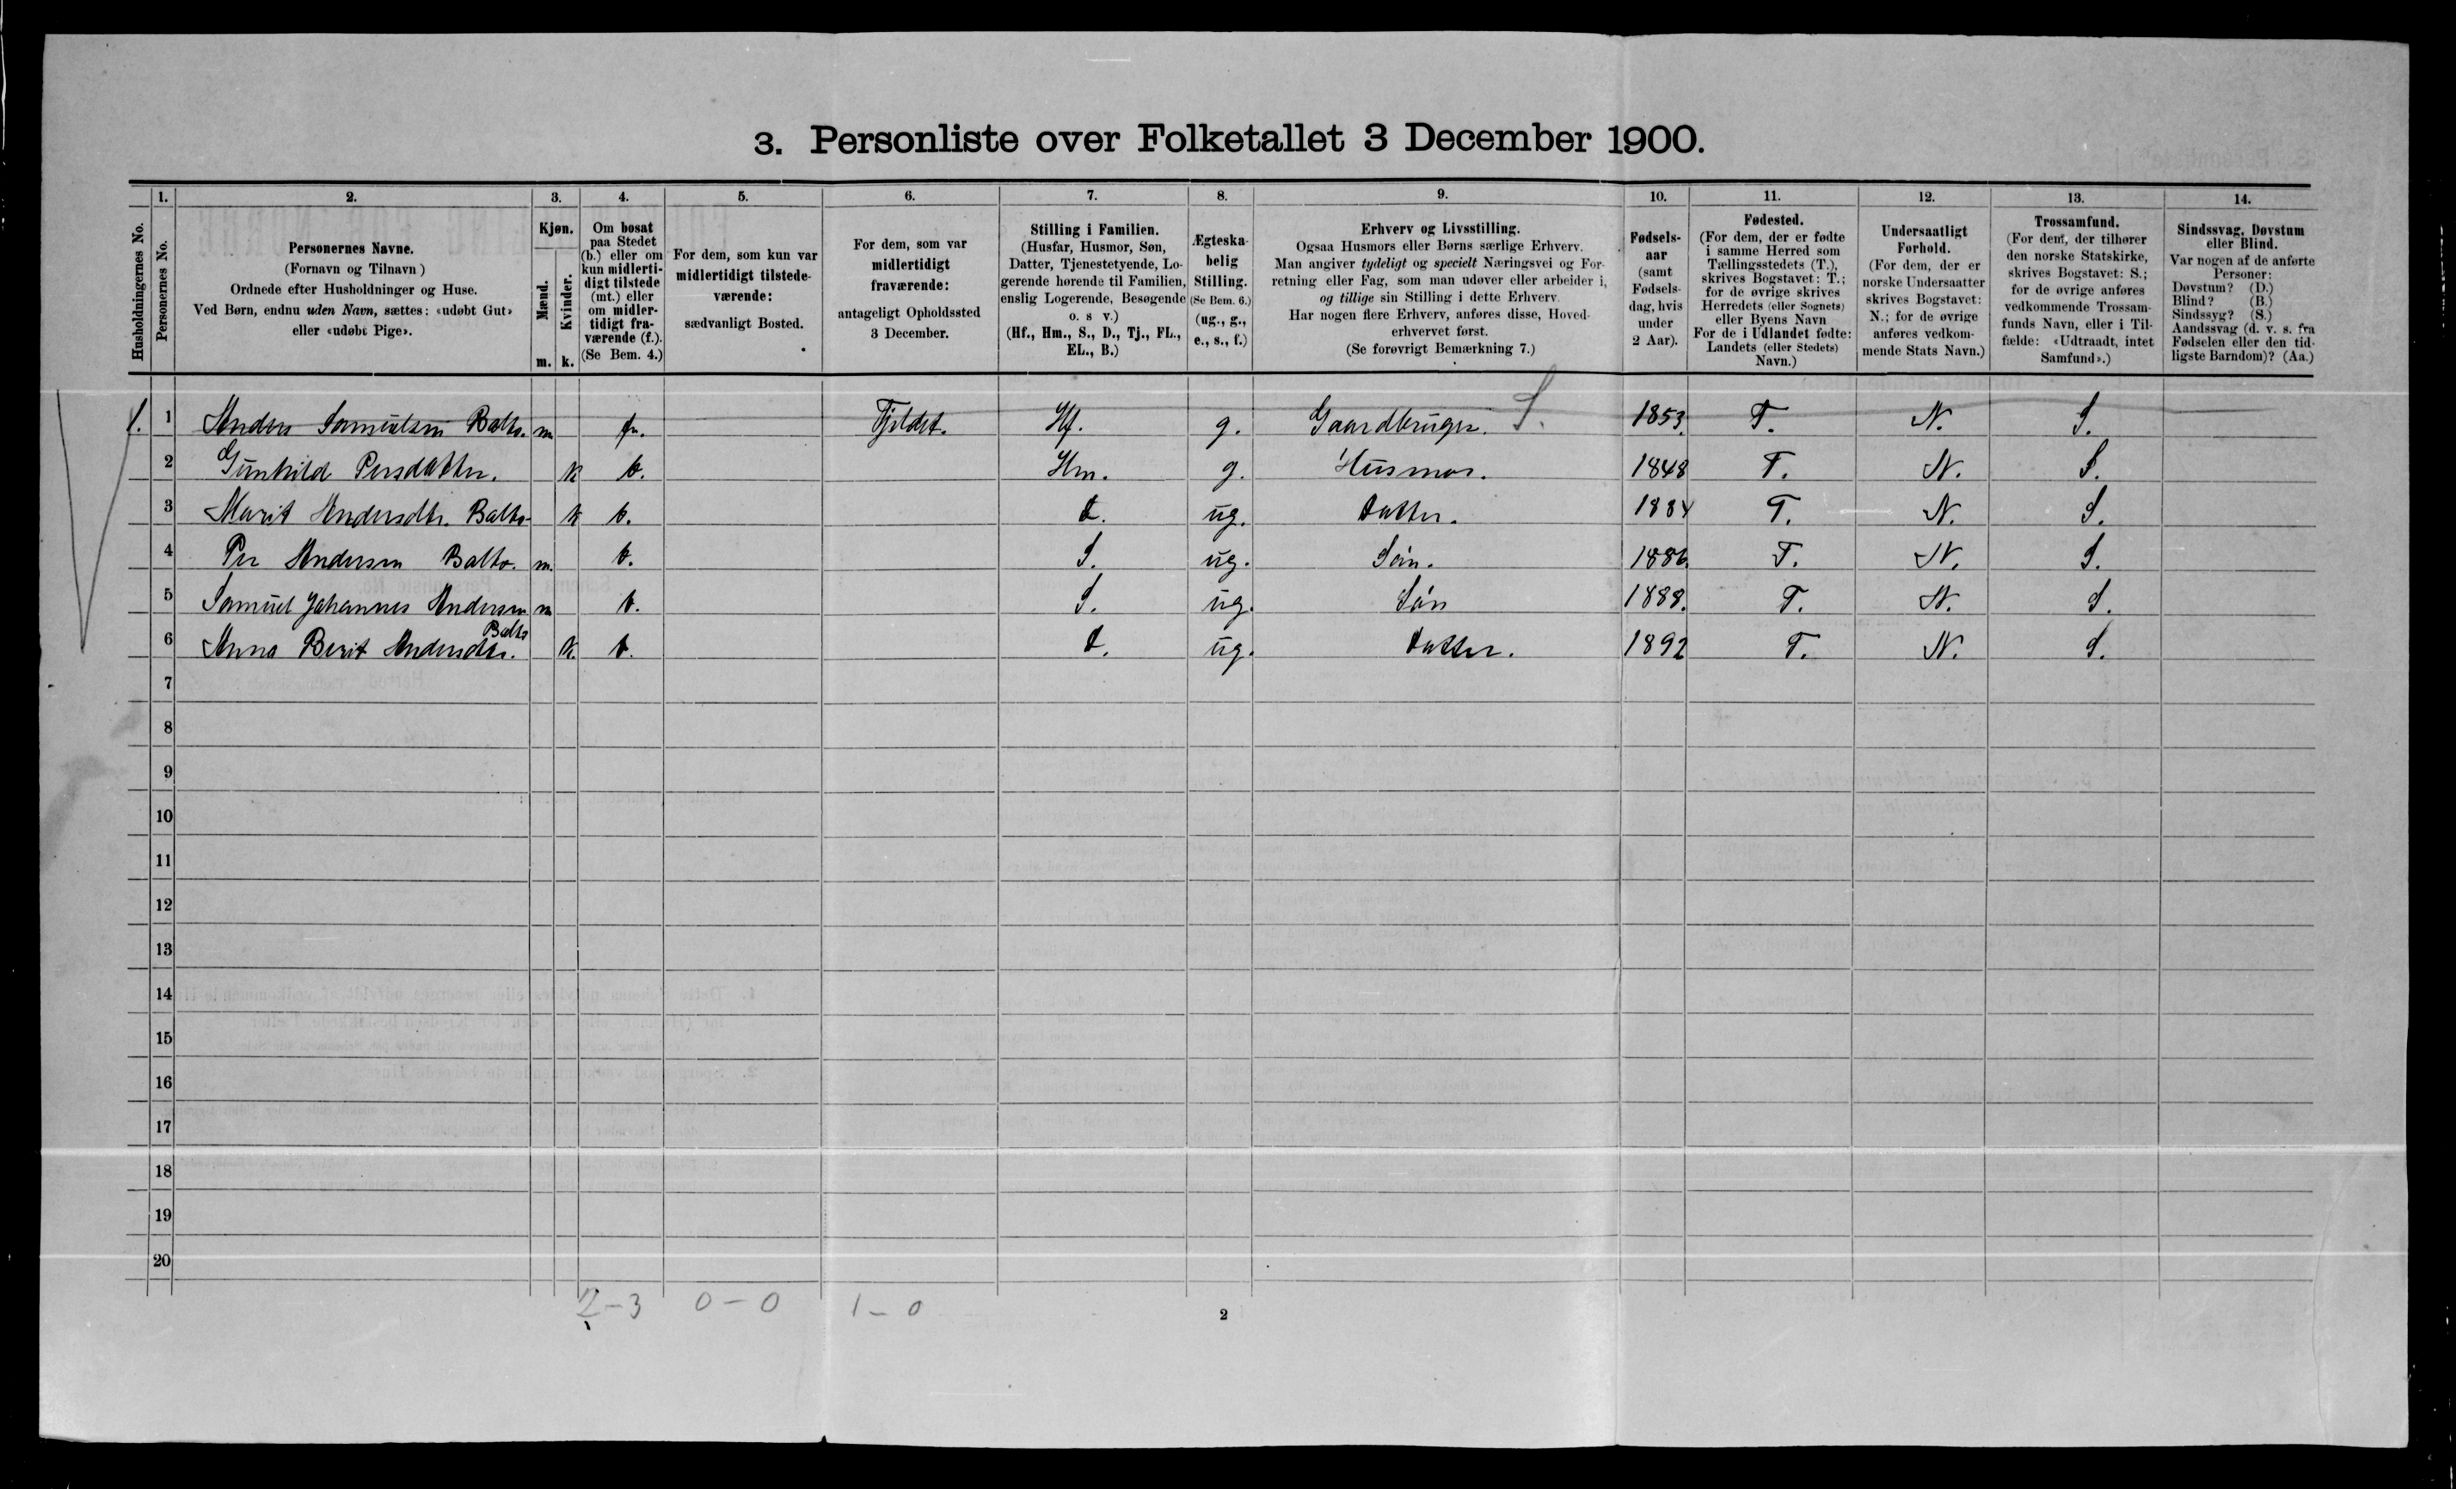 3. Personliste over Folketallet 3 December 1900.
Husholdningernes No.
1.
Personernes No.
2.
Personernes Navne.
(Fornavn og Tilnavn )
Ordnede efter Husholdninger og Huse.
Ved Børn, endnu uden Navn, sættes: «udøbt Gut»
eller «udøbt Pige».
3.
Kjøn.
Mænd.
Kvinder.
m. k.
4.
Om bosat
paa Stedet
(b.) eller om
kun midlerti-
digt tilstede
(mt.) eller
om midler-
tidigt fra-
værende (f.).
(Se Bem. 4.)
5.
For dem, som kun var
midlertidigt tilstede-
værende:
sædvanligt Bosted.
6.
For dem, som var
midlertidigt
fraværende:
antageligt Opholdssted
3 December.
7.
Stilling i Familien.
(Husfar, Husmor, Søn,
Datter, Tjenestetyende, Lo-
gerende hørende til Familien,
enslig Logerende, Besøgende
o. s v.)
(Hf., Hm., S., D., Tj., FL.,
EL., B.)
8.
Ægteska-
belig
Stilling.
(Se Bem. 6.)
(ug., g.,
e., s., f.)
9.
Erhverv og Livsstilling.
Ogsaa Husmors eller Børns særlige Erhverv.
Man angiver tydeligt og specielt Næringsvei og For-
retning eller Fag, som man udøver eller arbeider i,
og tillige sin Stilling i dette Erhverv.
Har nogen flere Erhverv, anføres disse, Hoved-
erhvervet først.
(Se forøvrigt Bemærkning 7.)
10.
Fødsels-
aar
(samt
Fødsels-
dag, hvis
under
2 Aar).
11.
Fødested.
(For dem, der er fødte
i samme Herred som
Tællingsstedets (T.),
skrives Bogstavet: T.;
for de øvrige skrives
Herredets (eller Sognets)
eller Byens Navn
For de i Udlandet fødte:
Landets (eller Stedets)
Navn.)
12.
Undersaatligt
Forhold.
(For dem, der er
norske Undersaatter
skrives Bogstavet:
N.; for de øvrige
anføres vedkom-
mende Stats Navn.)
13.
Trossamfund.
(For dem, der tilhører
den norske Statskirke,
skrives Bogstavet: S.;
for de øvrige anføres
vedkommende Trossam-
funds Navn, eller i Til-
fælde: «Udtraadt, intet
Samfund».)
14.
Sindssvag, Døvstum
eller Blind.
Var nogen af de anførte
Personer:
Døvstum? (D.)
Blind? (B.)
Sindssyg? (S.)
Aandssvag (d. v. s. fra
Fødselen eller den tid-
ligste Barndom)? (Aa.)
1. 1 Anders Samuelsen Balto. m. Fjeldet. Hf. g. Gaardbruger. S. 1853. T. N. S.
2 Gunhild Persdatter. k b. Hm. g. Husmor. 1848 T. N. S.
3 Marit Andersdtr. Balto k b. d. ug. datter. 1884 T. N. S.
4 Per Andersen Balto. m. b. S. ug. Søn. 1886. T. N. S.
5 Samuel Johannes Andersen m b. S. ug. Søn 1888. T. N. S.
Balto
6 Anna Berit Andersdtr. k. b. d. ug. datter. 1892 T. N. S.
7
8
9
10
11
12
13
14
15
16
17
18
19
20
2-3 0-0 1-0
2